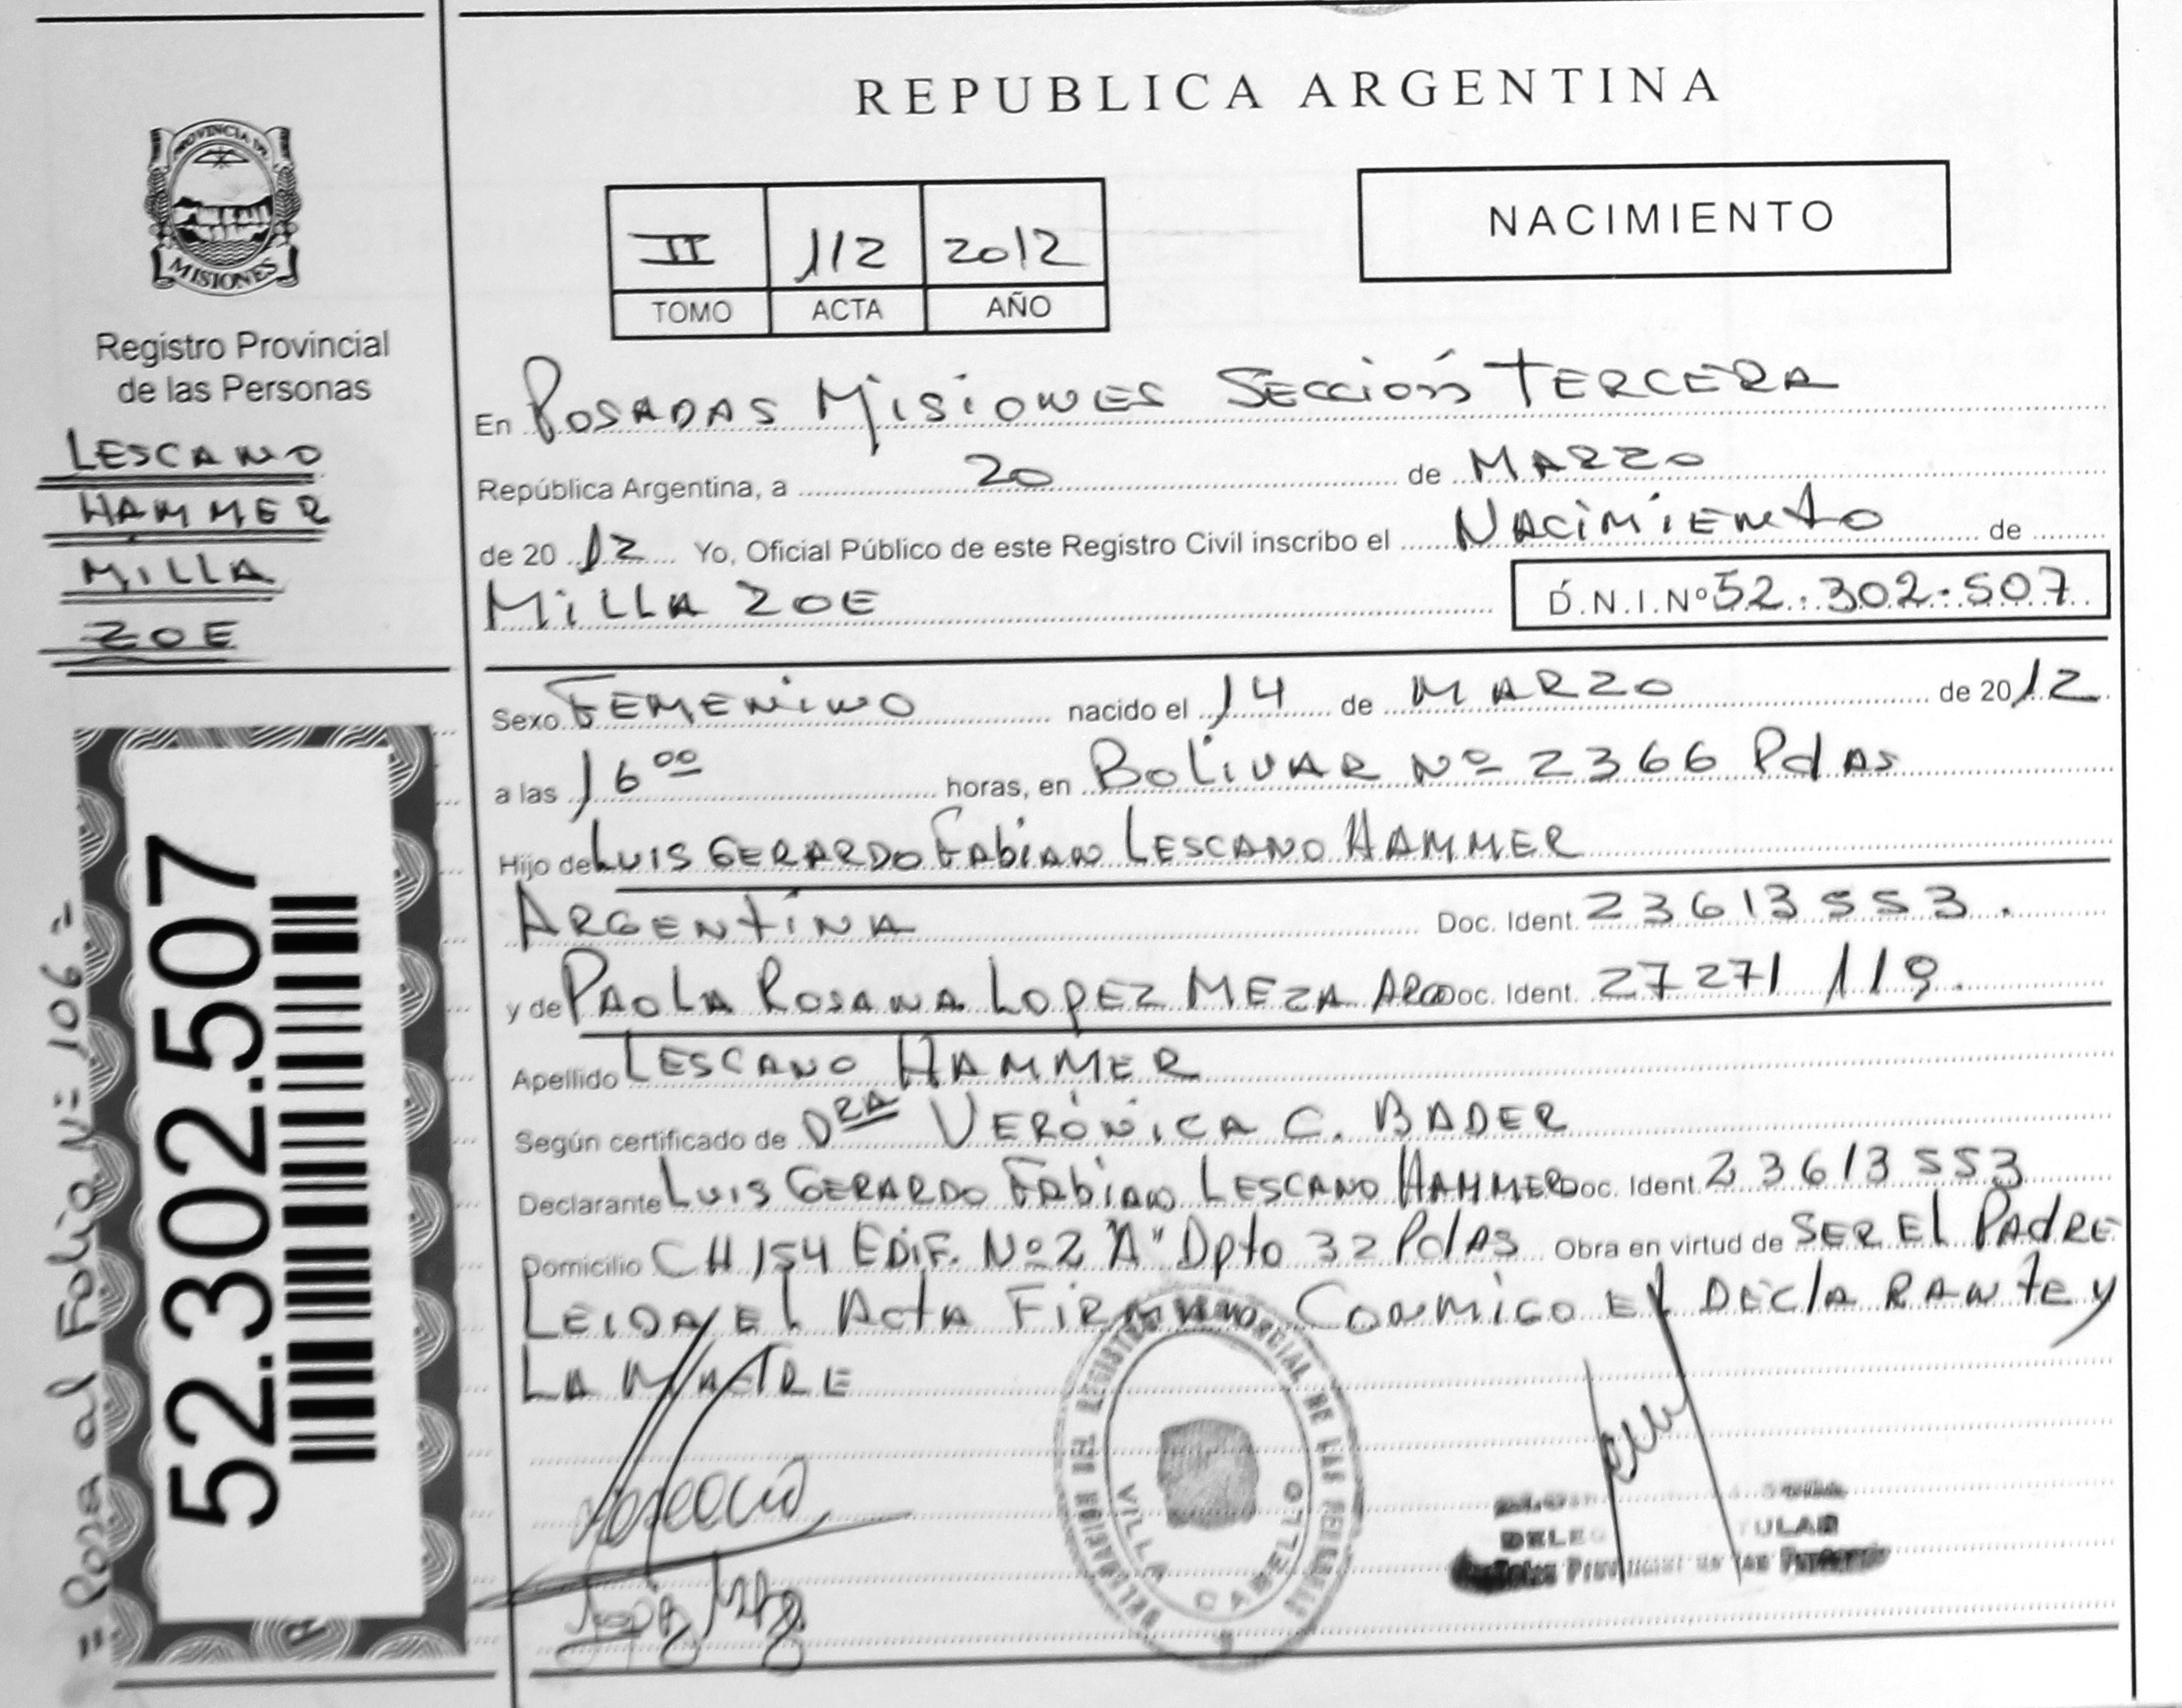 REPUBLICA ARGENTINA
PROVINCIA DE
MISIONES
Registro Provincial
de las Personas
LESCANO
HAMMER
MILLA
ZOE
= Pasa al Folio N= 106 =
52.302.507
II 112 2012
TOMO ACTA AÑO
NACIMIENTO
En POSADAS MISIONES SECCIÓN TERCERA
República Argentina, a 20 de MARZO
de 2012 Yo, Oficial Público de este Registro Civil inscribo el NACIMIENTO de
MILLA ZOE D.N.I.Nº 52.302.507
Sexo FEMENINO nacido el 14 de MARZO de 2012
a las 16 00 horas, en BOLIVAR Nº 2366 Pdas
Hijo de LUIS GERARDO FABIAN LESCANO HAMMER
ARGENTINA Doc. Ident. 23613553.
y de PAOLA ROSANA LOPEZ MEZA Doc. Ident. 27271119.
Apellido LESCANO HAMMER
Según certificado de DRA VERÓNICA C. BADER
Declarante LUIS GERARDO FABIAN LESCANO HAMMER Doc. Ident. 23613553
Domicilio CH 154 EDIF. Nº2 "A" Dpto 32 Pdas Obra en virtud de SER EL PADRE
LEIDA EL ACTA FIRMAN CONMIGO EL DECLARANTE Y
LA MADRE
DELEGACION DEL REGISTRO PROVINCIAL DE LAS PERSONAS
VILLA CABELLO
TULAR